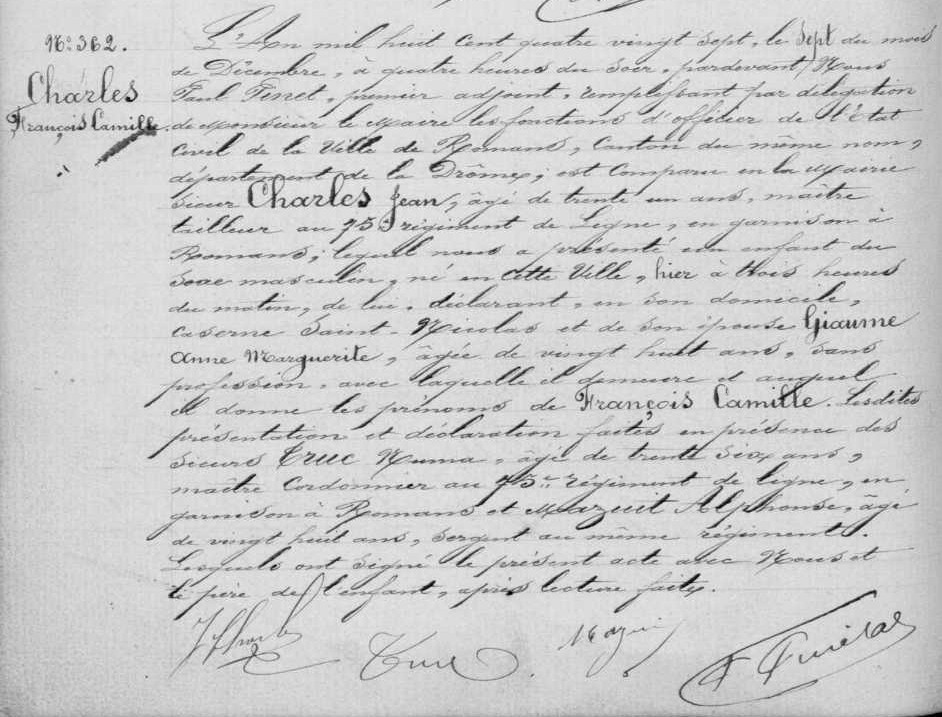 N° 362.
Charles
François Camille.
L'An mil huit cent quatre vingt sept, le sept du mois
de Décembre, à quatre heures du soir, pardevant Nous
Paul Finet, premier adjoint, remplissant par délégation
de Monsieur le Maire les fonctions d'officier de l'Etat
Civil de la Ville de Romans, Canton du même nom,
département de la Drôme, est comparu en la Mairie
sieur Charles Jean, âgé de trente un ans, maître
tailleur au 75e régiment de Ligne, en garnison à
Romans, lequel nous a présenté un enfant du
sexe masculin, né en cette Ville, hier à trois heures
du matin, de lui, déclarant, en son domicile,
caserne Saint-Nicolas et de son épouse Giaume
Anne Marguerite, âgée de vingt huit ans, sans
profession, avec laquelle il demeure et auquel
il donne les prénoms de François Camille. Lesdites
présentation et déclaration faites en présence des
sieurs Truc Numa, âgé de trente six ans,
maître Cordonnier au 75e régiment de ligne, en
garnison à Romans et Mazuit Alphonse, âgé
de vingt huit ans, sergent au même régiment.
Lesquels ont signé le présent acte avec Nous et
le père de l'enfant, après lecture faite.
Truc